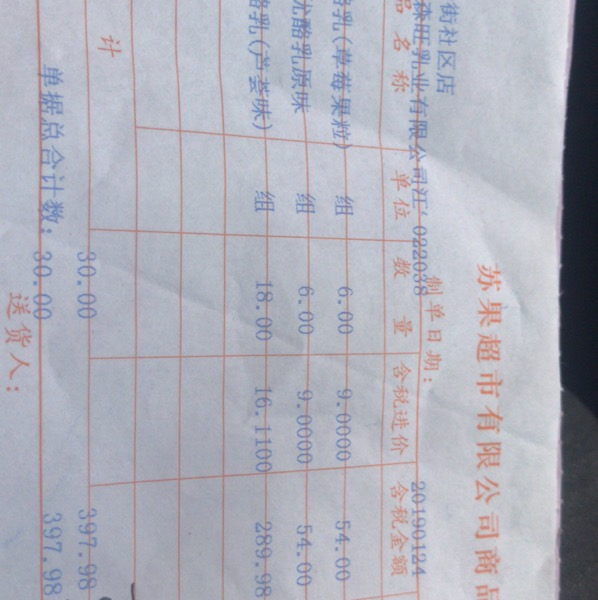 苏果超市有限公司商品
街社区店 制单日期: 20190124
森旺乳业有限公司江 022038
品名称 单位 数量 含税进价 含税金额
酪乳(草莓果粒) 组 6.00 9.0000 54.00
优酪乳原味 组 6.00 9.0000 54.00
酪乳(芦荟味) 组 18.00 16.1100 289.98
计 30.00 397.98
单据总合计数: 30.00 397.98
送货人: